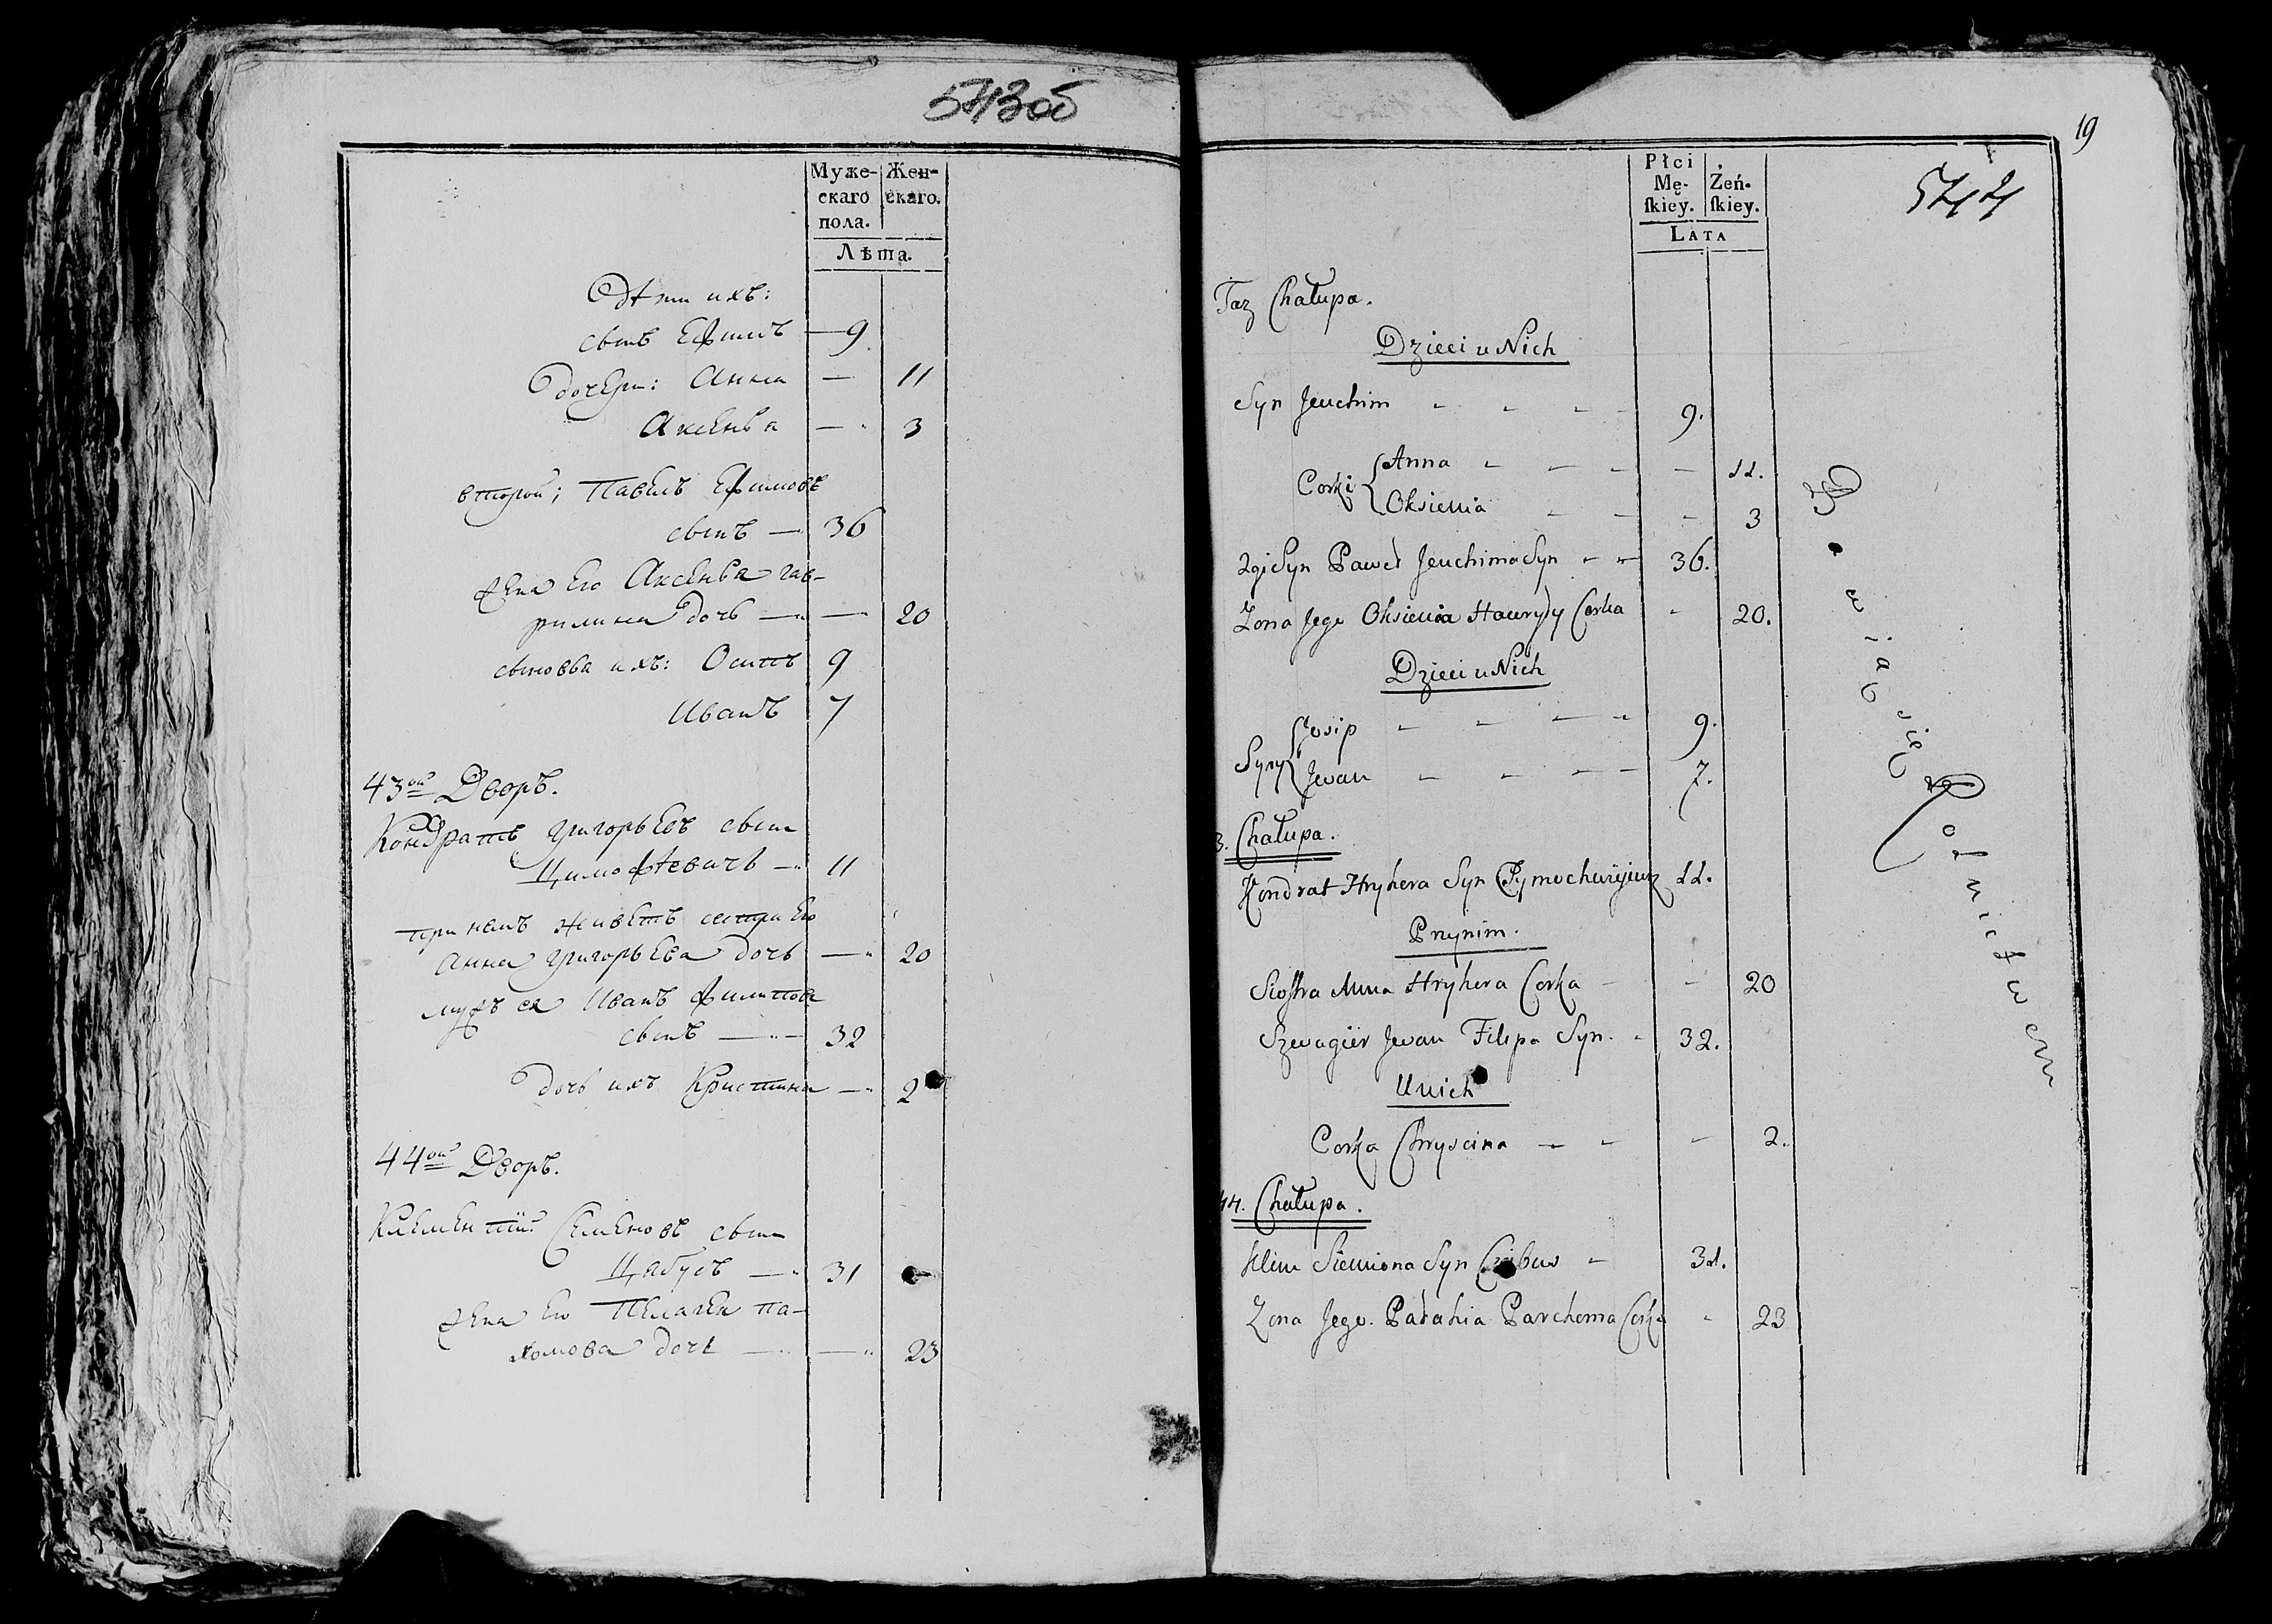 543об
Муже-
скаго
пола.
Жен-
скаго.
Лѣта.
Дѣти ихъ:
сынъ Ефимъ — 9
Дочери: Анна — 11
Аксенья — 3
второй; Павелъ Ефимовъ
сынъ — 36
жена Его Аксенья гав-
рилина дочь — — 20
сыновья ихъ: Осипъ 9
Иванъ 7
43ой Дворъ.
Кондратъ григорьевъ сынъ
Цимофѣевичъ — 11
при немъ живетъ сестра Его
Анна григорьева дочь — 20
мужъ ея Иванъ филиповъ
сынъ — 32
дочь ихъ Кристина — 2
44ой Дворъ.
Клементий Семеновъ сынъ
Цябусъ — 31
жена Его Пелагея па-
хомова дочь — — 23
19
544
Płci
Mę-
ſkiey.
Żeń-
ſkiey.
LATA
Taz Chałupa.
Dzieci u Nich
Syn Jeuchim - - - - 9.
Corki { Anna - - - - 11.
Oksienia - - - 3
2gi Syn Paweł Jeuchima Syn - - 36.
Zona Jego Oksienia Hawryły Corka - 20.
Dzieci u Nich
Syny { Josip - - - - 9.
Jwan - - - - 7.
3. Chałupa.
Kondrat Hryhera Syn 11.
Przynim.
Siostra Anna Hryhera Corka - - 20
Szwagier Jwan Filipa Syn. - 32.
Unich
Corka Chryscina - - - 2.
44. Chałupa.
Klim Siemiona Syn - 31.
Zona Jego. Pałahia Parchoma Corka - 23